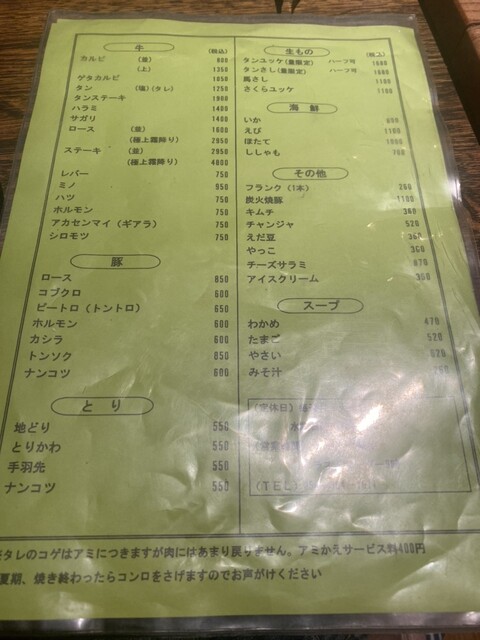 牛 (税込)
カルビ (並) 800
(上) 1350
ゲタカルビ 1050
タン (塩)(タレ) 1250
タンステーキ 1900
ハラミ 1400
サガリ 1400
ロース (並) 1600
(極上霜降り) 2950
ステーキ (並) 2950
(極上霜降り) 4800
レバー 750
ミノ 950
ハツ 750
ホルモン 750
アカセンマイ(ギアラ) 750
シロモツ 750
豚
ロース 850
コブクロ 600
ピートロ(トントロ) 650
ホルモン 600
カシラ 600
トンソク 850
ナンコツ 600
とり
地どり 550
とりかわ 550
手羽先 550
ナンコツ 550
生もの (税込)
タンユッケ(量限定) ハーフ可
タンさし(量限定) ハーフ可
馬さし 1100
さくらユッケ 1100
海鮮
いか 800
えび 1100
ほたて
ししゃも 700
その他
フランク(1本) 260
炭火焼豚 1100
キムチ 360
チャンジャ 520
えだ豆 360
やっこ 360
チーズサラミ 870
アイスクリーム 360
スープ
わかめ 470
たまご 520
やさい 620
みそ汁 260
(定休日)
(TEL)
タレのコゲはアミにつきますが肉にはあまり戻りません。アミかえサービス料400円
夏期、焼き終わったらコンロをさげますのでお声がけください